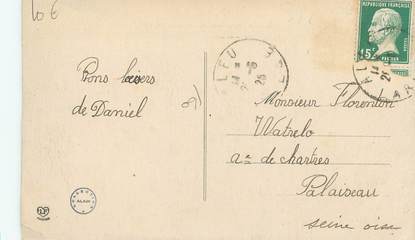 10 €
REPUBLIQUE FRANÇAISE
15c
PASTEUR
Bons baisers
de Daniel
Monsieur Florentin
Watrelo
de chartres
Palaiseau
seine oise